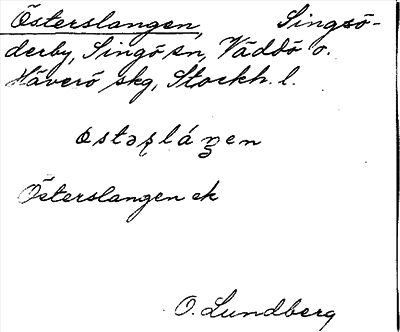 Österslangen, Singsö-
derby, Singö sn, Väddö o.
Häverö skg, Stockh. l.
östəʂláŋen
Österslangen ek
O. Lundberg